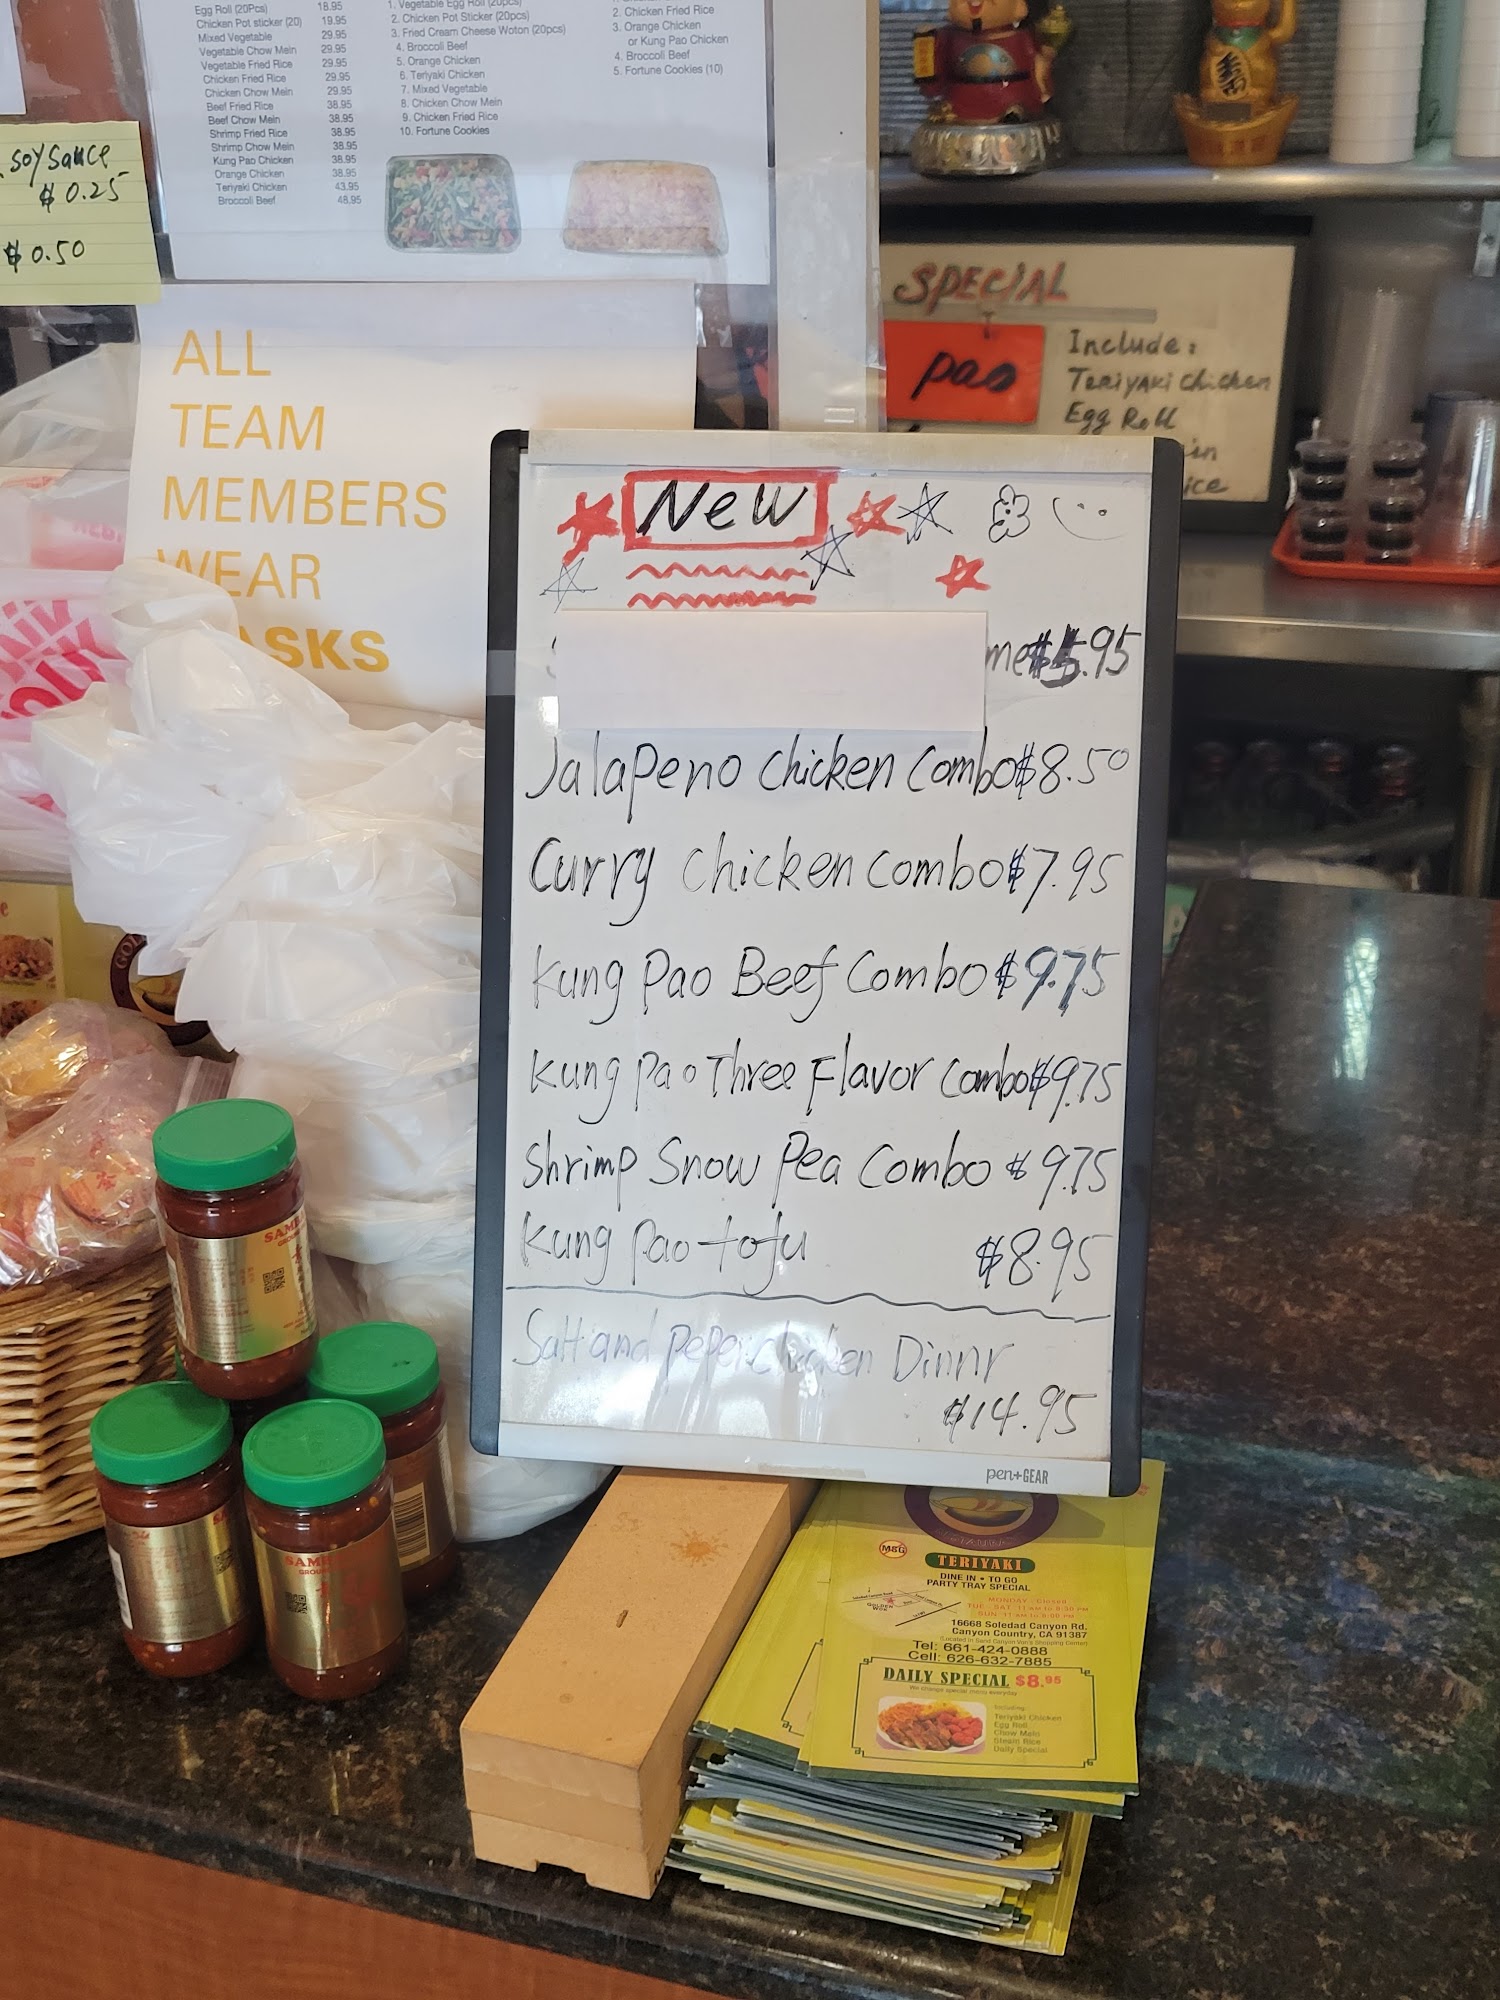 Egg Roll (20Pcs) 18.95
Chicken Pot sticker (20) 19.95
Mixed Vegetable 29.95
Vegetable Chow Mein 29.95
Vegetable Fried Rice 29.95
Chicken Fried Rice 29.95
Chicken Chow Mein 29.95
Beef Fried Rice 38.95
Beef Chow Mein 38.95
Shrimp Fried Rice 38.95
Shrimp Chow Mein 38.95
Kung Pao Chicken 38.95
Orange Chicken 38.95
Teriyaki Chicken 43.95
Broccoli Beef 48.95
1. Vegetable Egg Roll (20pcs)
2. Chicken Pot Sticker (20pcs)
3. Fried Cream Cheese Woton (20pcs)
4. Broccoli Beef
5. Orange Chicken
6. Teriyaki Chicken
7. Mixed Vegetable
8. Chicken Chow Mein
9. Chicken Fried Rice
10. Fortune Cookies
2. Chicken Fried Rice
3. Orange Chicken
or Kung Pao Chicken
4. Broccoli Beef
5. Fortune Cookies (10)
soy sauce
$0.25
$0.50
ALL
TEAM
MEMBERS
WEAR
ASKS
SPECIAL
Pao
Include:
Teriyaki chicken
Egg Roll
in
ice
New
me $5.95
Jalapeno chicken Combo $8.50
Curry chicken Combo $7.95
Kung Pao Beef Combo $9.75
Kung Pao Three Flavor Combo $9.75
Shrimp Snow Pea Combo $9.75
Kung Pao tofu $8.95
Salt and Peper chicken Dinnr
$14.95
pen+GEAR
SAMB
GROUN
SAMB
GROUN
MSG
TERIYAKI
DINE IN • TO GO
PARTY TRAY SPECIAL
MONDAY - Closed
TUE - SAT: 11 AM to 8:30 PM
SUN: 11 AM to 8:00 PM
16668 Soledad Canyon Rd.
Canyon Country, CA 91387
Tel: 661-424-0888
Cell: 626-632-7885
DAILY SPECIAL $8.95
We change special menu everyday
Including:
Teriyaki Chicken
Egg Roll
Chow Mein
Steam Rice
Daily Special